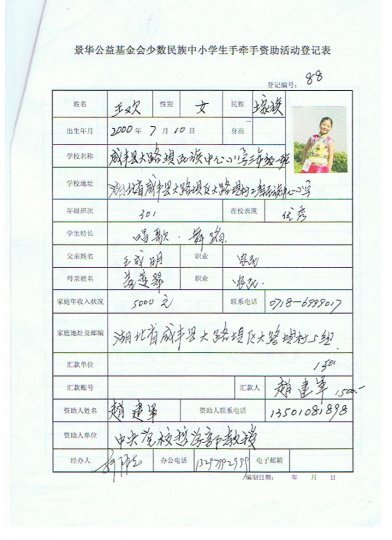 景华公益基金会少数民族中小学生手牵手资助活动登记表
登记编号：88
姓名 王欢 性别 女 民族
出生年月 2000年7月10日 身高
学校名称 咸丰县大路坝民族中心小学三年级一班
学校地址 湖北省咸丰县大路坝区大路坝村
年级班次 301 在校表现 优秀
学生特长 唱歌．舞蹈
父亲姓名 王成明 职业 农民
母亲姓名 职业 农民
家庭年收入状况 5000元 联系电话 0718-6999017
家庭地址及邮编 湖北省咸丰县大路坝区大路坝村5组
汇款单位
汇款账号 汇款人 赵建军 1500
资助人姓名 赵建军 资助人联系电话 13501081898
资助人单位 中央党校哲学部教授
经办人 办公电话 电子邮箱
编制日期： 年 月 日